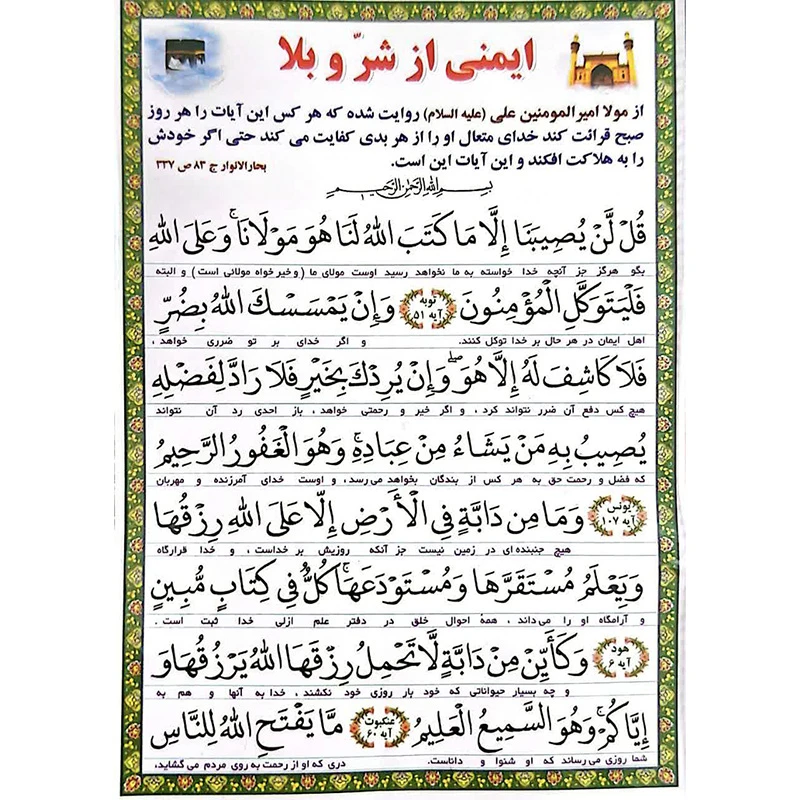 ایمنی از شرّ و بلا
از مولا امیرالمومنین علی (علیه السلام) روایت شده که هر کس این آیات را هر روز
صبح قرائت کند خدای متعال او را از هر بدی کفایت می کند حتی اگر خودش
را به هلاکت افکند و این آیات این است.
بحارالانوار ج ۸۳ ص ۳۳۷
بِسْمِ اللهِ الرَّحْمٰنِ الرَّحیمِ
قُلْ لَّنْ یُصِیبَنَا إِلَّا مَا کَتَبَ اللّٰهُ لَنَا هُوَ مَوْلَانَا ۚ وَعَلَی اللّٰهِ
بگو هرگز جز آنچه خدا خواسته به ما نخواهد رسید اوست مولای ما (و خیرخواه مولائی است) و البته
فَلْیَتَوَکَّلِ الْمُؤْمِنُونَ توبه آیه ۵۱ وَإِنْ یَمْسَسْكَ اللّٰهُ بِضُرٍّ
اهل ایمان در هر حال بر خدا توکل کنند. و اگر خدای بر تو ضرری خواهد ،
فَلَا کَاشِفَ لَهُ إِلَّا هُوَ ۖ وَإِنْ یُرِدْكَ بِخَیْرٍ فَلَا رَادَّ لِفَضْلِهِ
هیچ کس دفع آن ضرر نتواند کرد ، و اگر خیر و رحمتی خواهد ، باز احدی رد آن نتواند
یُصِیبُ بِهِ مَنْ یَشَاءُ مِنْ عِبَادِهِ ۚ وَهُوَ الْغَفُورُ الرَّحِیمُ
که فضل و رحمت حق به هر کس از بندگان بخواهد می رسد ، و اوست خدای آمرزنده و مهربان
یونس آیه ۱۰۷ وَمَا مِن دَابَّةٍ فِی الْأَرْضِ إِلَّا عَلَی اللّٰهِ رِزْقُهَا
هیچ جنبنده ای در زمین نیست جز آنکه روزیش بر خداست ، و خدا قرارگاه
وَیَعْلَمُ مُسْتَقَرَّهَا وَمُسْتَوْدَعَهَا ۚ کُلٌّ فِی کِتَابٍ مُّبِینٍ
و آرامگاه او را می داند ، همهٔ احوال خلق در دفتر علم ازلی خدا ثبت است .
هود آیه ۶ وَکَأَیِّنْ مِنْ دَابَّةٍ لَّا تَحْمِلُ رِزْقَهَا اللّٰهُ یَرْزُقُهَا وَ
و چه بسیار حیواناتی که خود بار روزی خود نکشند ، خدا به آنها و هم به
إِیَّاکُمْ ۚ وَهُوَ السَّمِیعُ الْعَلِیمُ عنکبوت آیه ۶۰ مَّا یَفْتَحِ اللّٰهُ لِلنَّاسِ
شما روزی می رساند که او شنوا و داناست. دری که او از رحمت به روی مردم می گشاید،